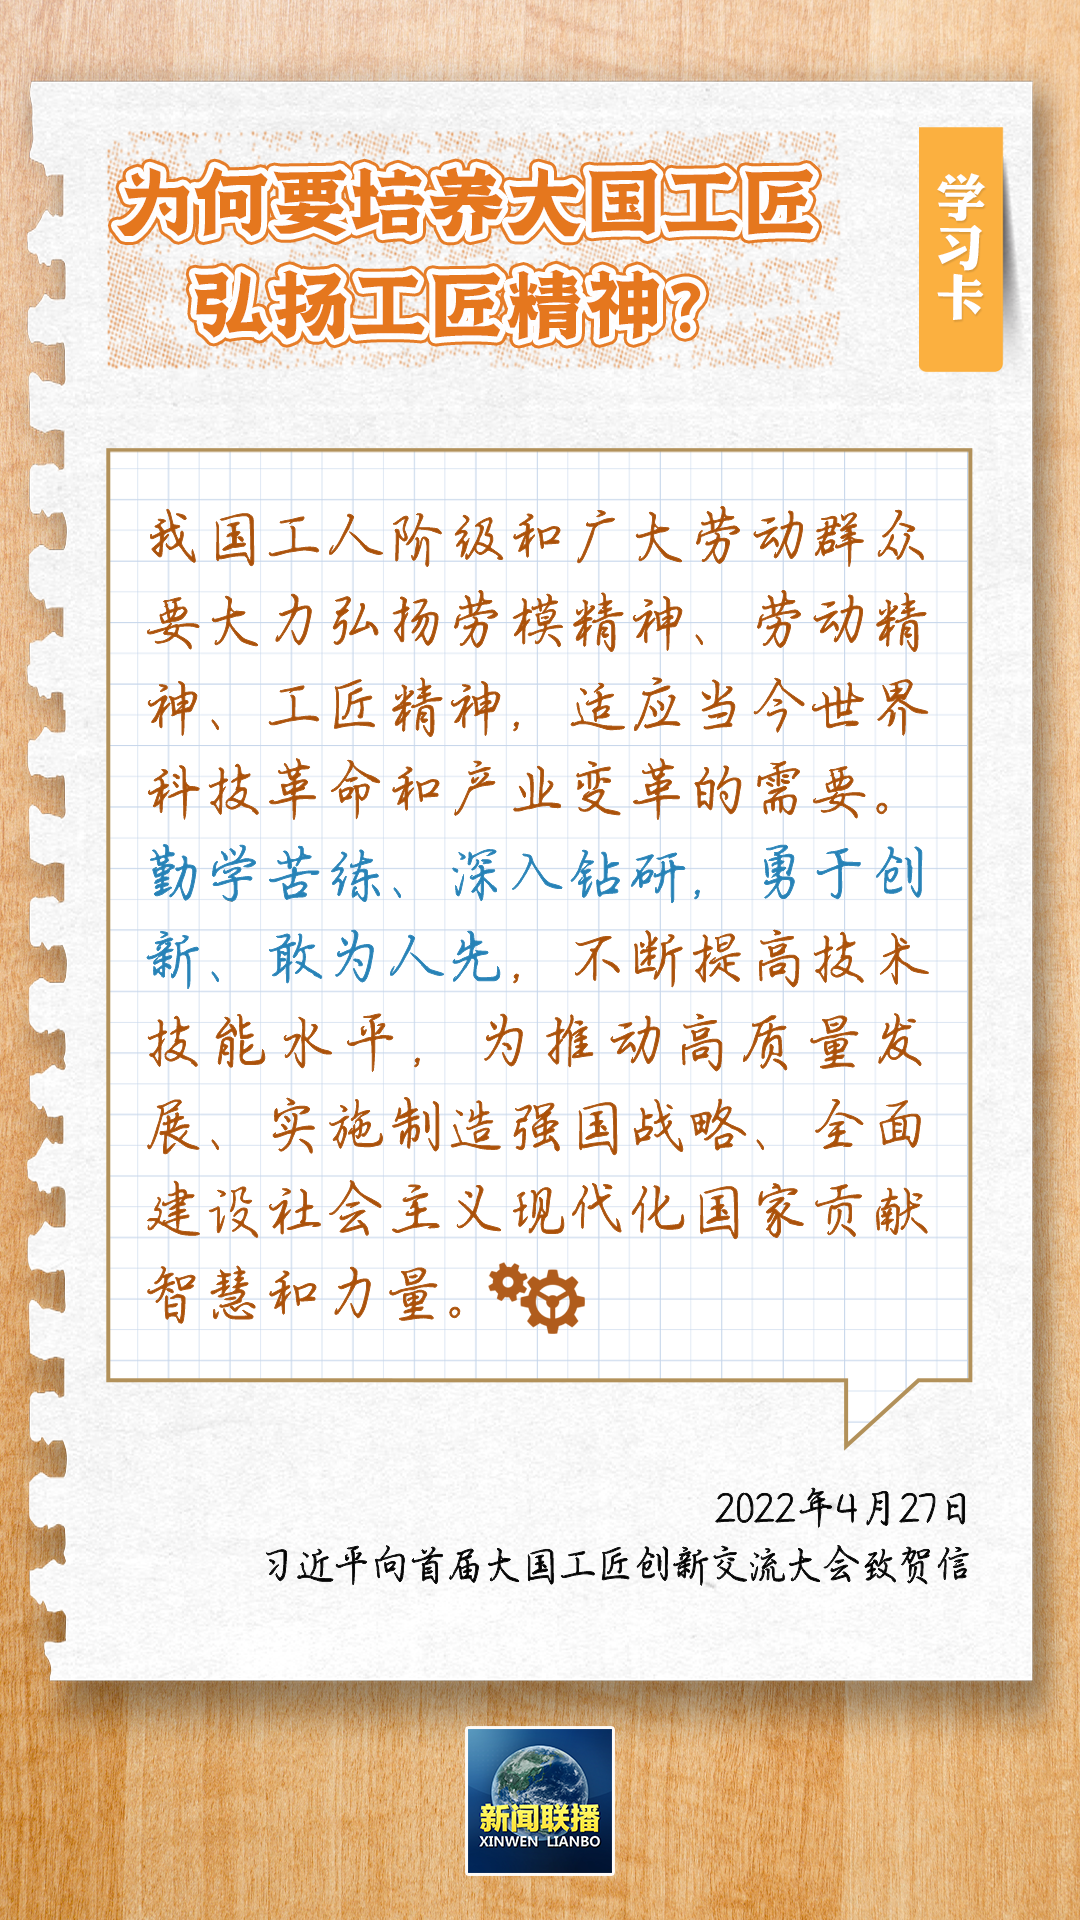 为何要培养大国工匠
弘扬工匠精神?
学习卡
我国工人阶级和广大劳动群众
要大力弘扬劳模精神、劳动精
神、工匠精神，适应当今世界
科技革命和产业变革的需要。
勤学苦练、深入钻研，勇于创
新、敢为人先，不断提高技术
技能水平，为推动高质量发
展、实施制造强国战略、全面
建设社会主义现代化国家贡献
智慧和力量。
2022年4月27日
习近平向首届大国工匠创新交流大会致贺信
新闻联播
XINWEN LIANBO